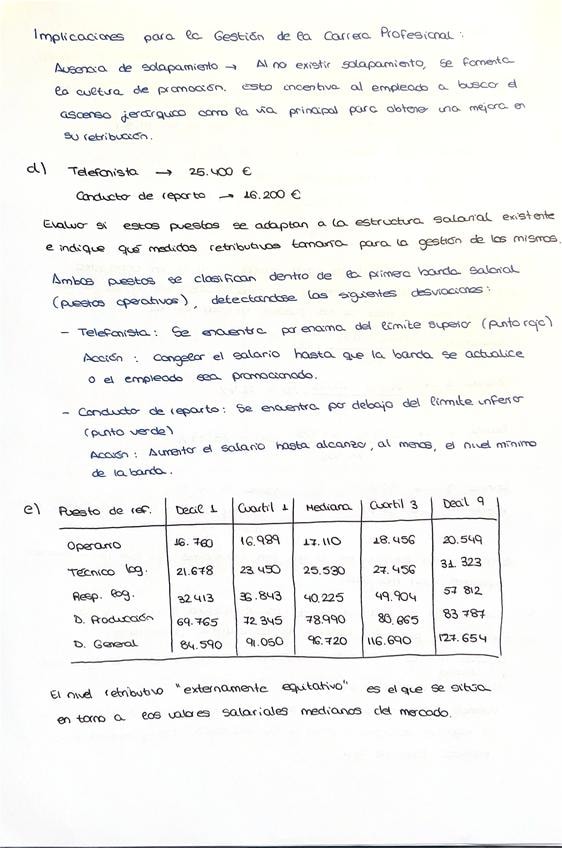 Implicaciones para la Gestión de la Carrera Profesional:
Ausencia de solapamiento → Al no existir solapamiento, se fomenta
la cultura de promoción. Esto incentiva al empleado a buscar el
ascenso jerárquico como la vía principal para obtener una mejora en
su retribución.
d) Telefonista → 25.400 €
Conductor de reparto → 16.200 €
Evalúo si estos puestos se adaptan a la estructura salarial existente
e indique qué medidas retributivas tomaría para la gestión de los mismos.
Ambos puestos se clasifican dentro de la primera banda salarial
(puestos operativos), detectándose las siguientes desviaciones:
- Telefonista: Se encuentra por encima del límite superior (punto rojo)
Acción: Congelar el salario hasta que la banda se actualice
o el empleado sea promocionado.
- Conductor de reparto: Se encuentra por debajo del límite inferior
(punto verde)
Acción: Aumentar el salario hasta alcanzar, al menos, el nivel mínimo
de la banda.
e) Puesto de ref. Decil 1 Cuartil 1 Mediana Cuartil 3 Decil 9
Operario 16.760 16.989 17.110 18.456 20.549
Técnico log. 21.678 23.450 25.530 27.456 31.323
Resp. log. 32.413 36.843 40.225 49.904 57.812
D. Producción 69.765 72.345 78.990 80.665 83.787
D. General 84.590 91.050 96.720 116.690 127.654
El nivel retributivo "externamente equitativo" es el que se sitúa
en torno a los valores salariales medianos del mercado.